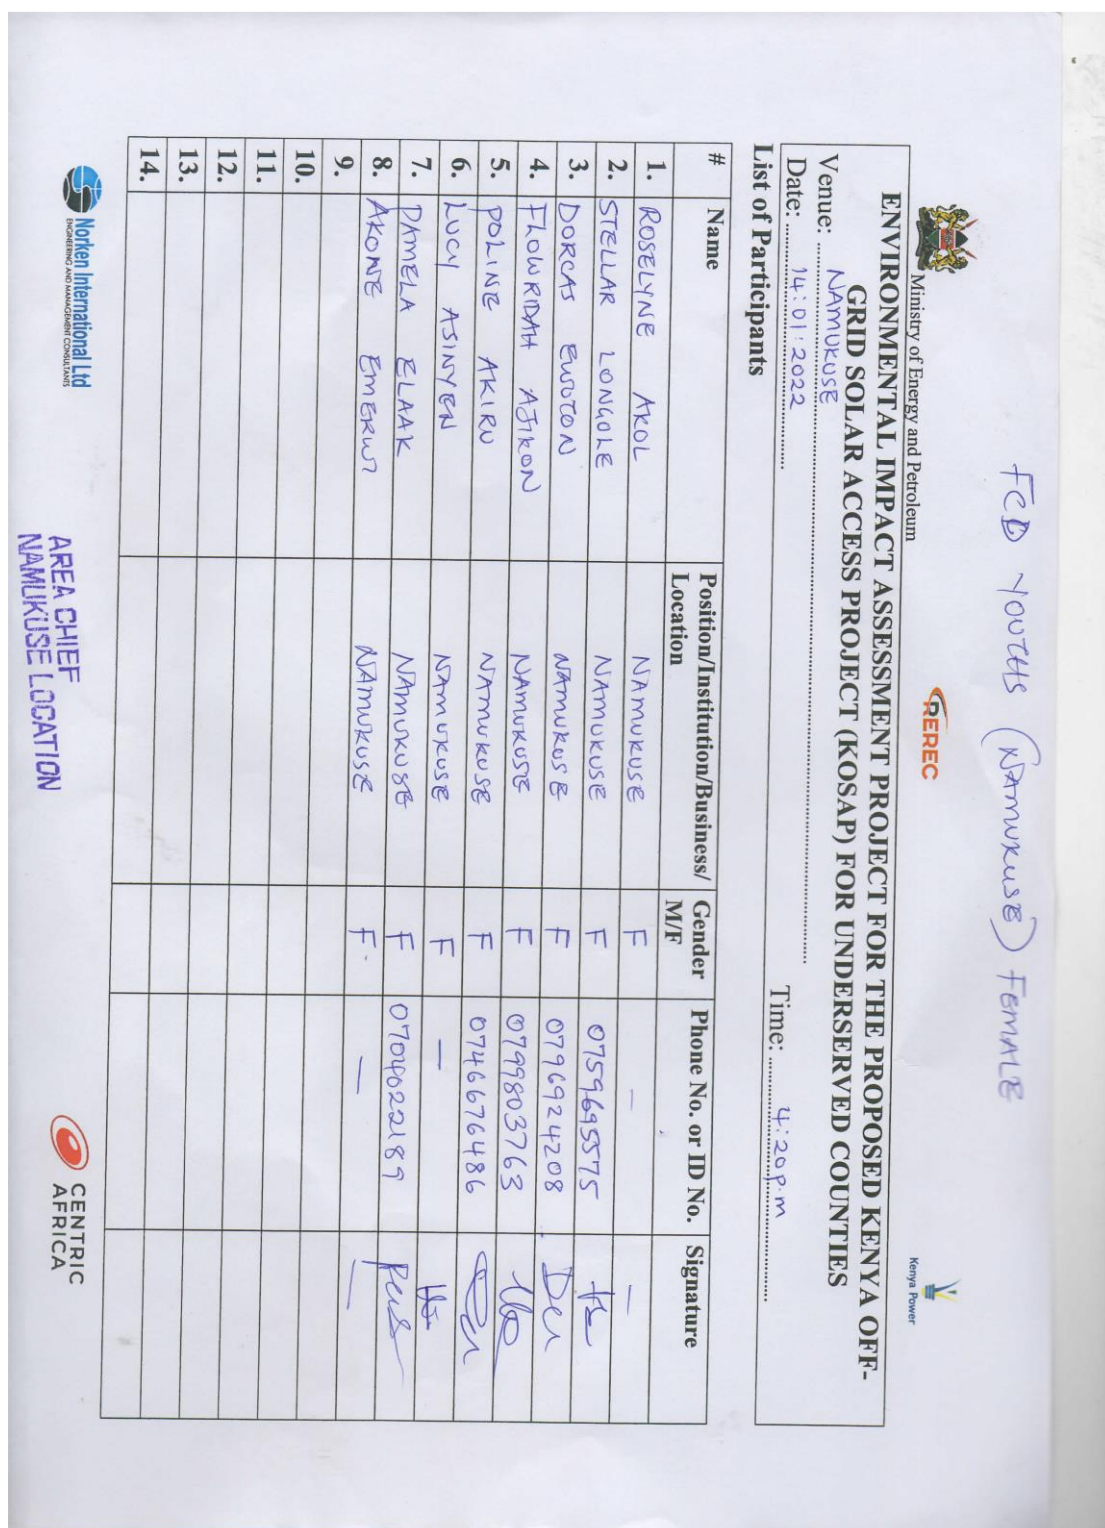 FCD YOUTHS (NAMUKUSE) FEMALE
Ministry of Energy and Petroleum
REREC
Kenya Power
ENVIRONMENTAL IMPACT ASSESSMENT PROJECT FOR THE PROPOSED KENYA OFF-
GRID SOLAR ACCESS PROJECT (KOSAP) FOR UNDERSERVED COUNTIES
Venue: NAMUKUSE
Date: 14:01:2022 Time: 4:20p.m
List of Participants
# Name Position/Institution/Business/ Location Gender M/F Phone No. or ID No. Signature
1. ROSELYNE AKOL NAMUKUSE F — —
2. STELLAR LONGOLE NAMUKUSE F 0759695575
3. DORCAS EWOTON NAMUKUSE F 0796924208
4. FLOWRIDAH AJIKON NAMUKUSE F 0799803763
5. POLINE AKIRU NAMUKUSE F 0746676486
6. LUCY ASINYEN NAMUKUSE F —
7. PAMELA ELAAK NAMUKUSE F 0704022189
8. AKONE NAMUKUSE F. — —
9.
10.
11.
12.
13.
14.
Norken International Ltd
ENGINEERING AND MANAGEMENT CONSULTANTS
AREA CHIEF
NAMUKUSE LOCATION
CENTRIC
AFRICA